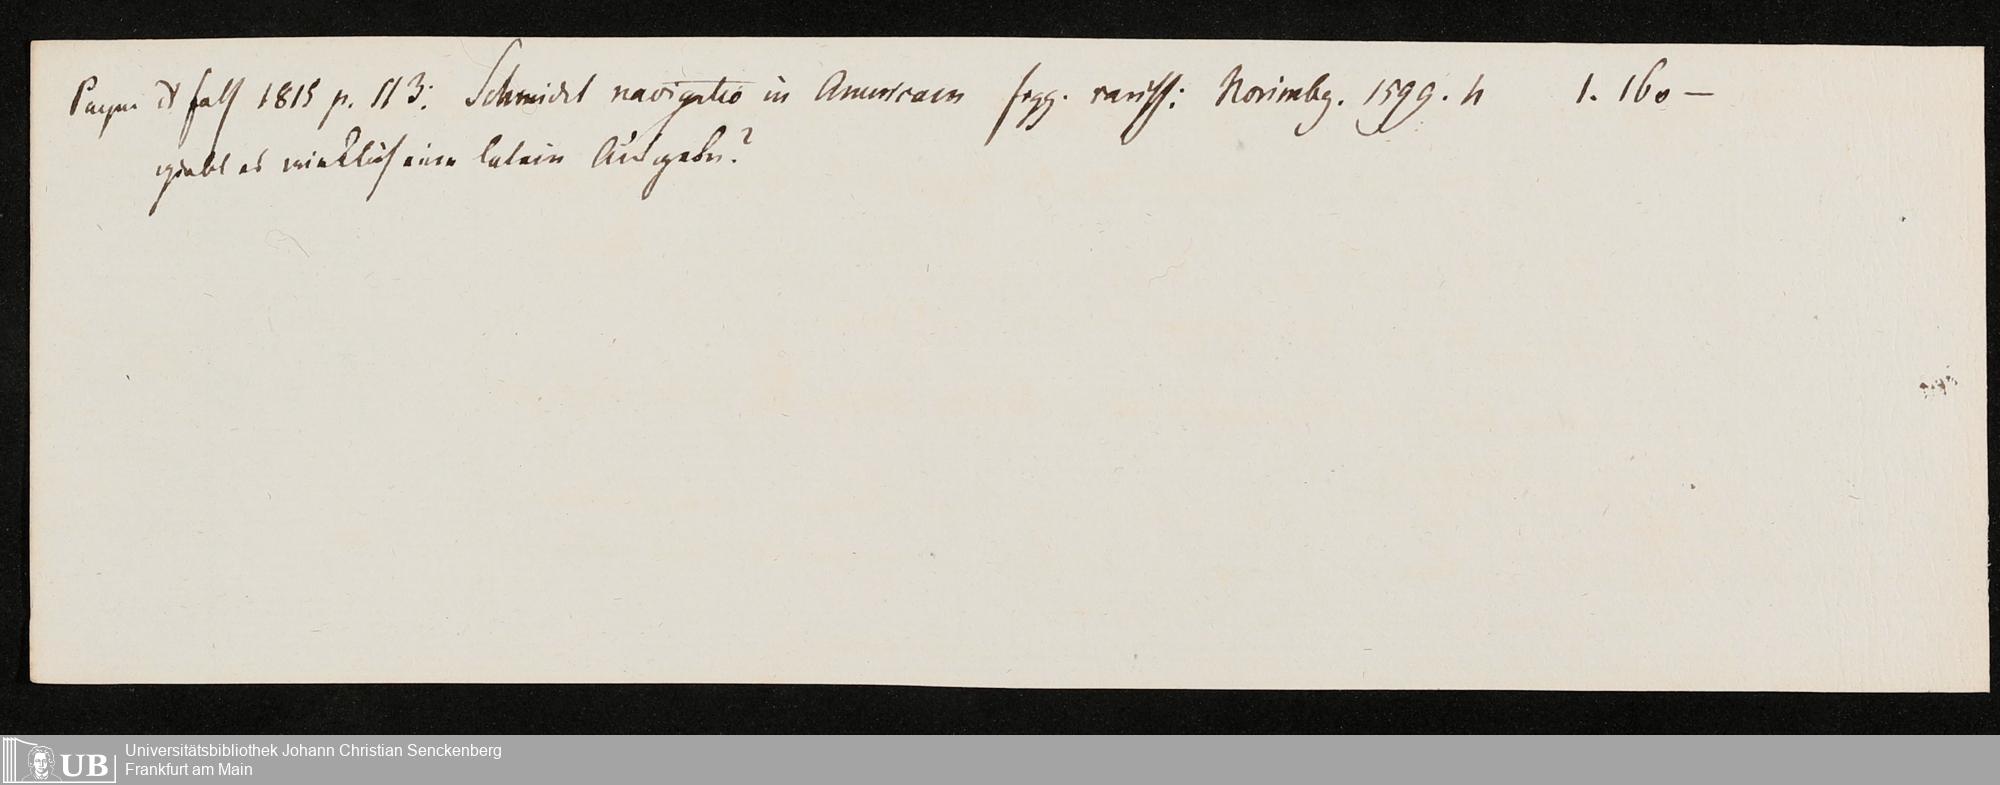 Payne & foss 1815 p. 113: Schmidel navigatio in Americam figg. rariss: Norimbg. 1599. 4 1. 160 —
giebt es wirklich eine latein Ausgabe?
UB
Universitätsbibliothek Johann Christian Senckenberg
Frankfurt am Main